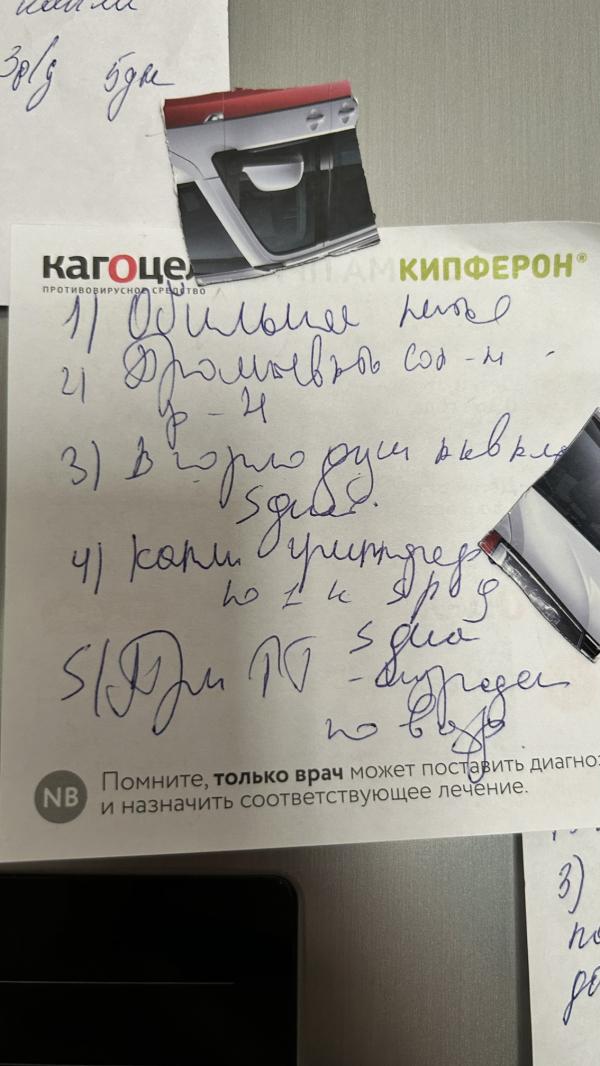 капли
3р/д 5дн
кагоцел
ПРОТИВОВИРУСНОЕ СРЕДСТВО
КИПФЕРОН®
1) Обильное питье
2) Промывать сол-м
р-м
3) В горло душ
5 дней
4) Капли гриппфер
по 1 к 5 р д
5 дней
5) При ТТ
по возр
NB
Помните, только врач может поставить диагноз
и назначить соответствующее лечение.
3)
по